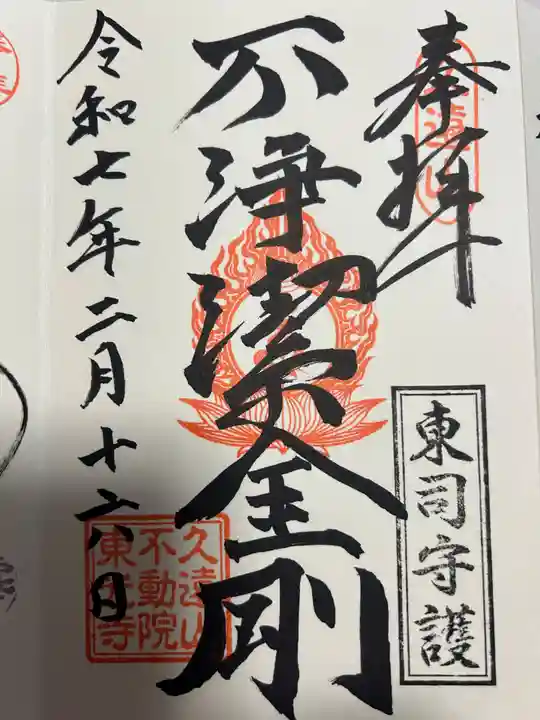 奉拝
久遠山
東司守護
不浄潔金剛
令和七年二月十六日
久遠山
不動院
東光寺